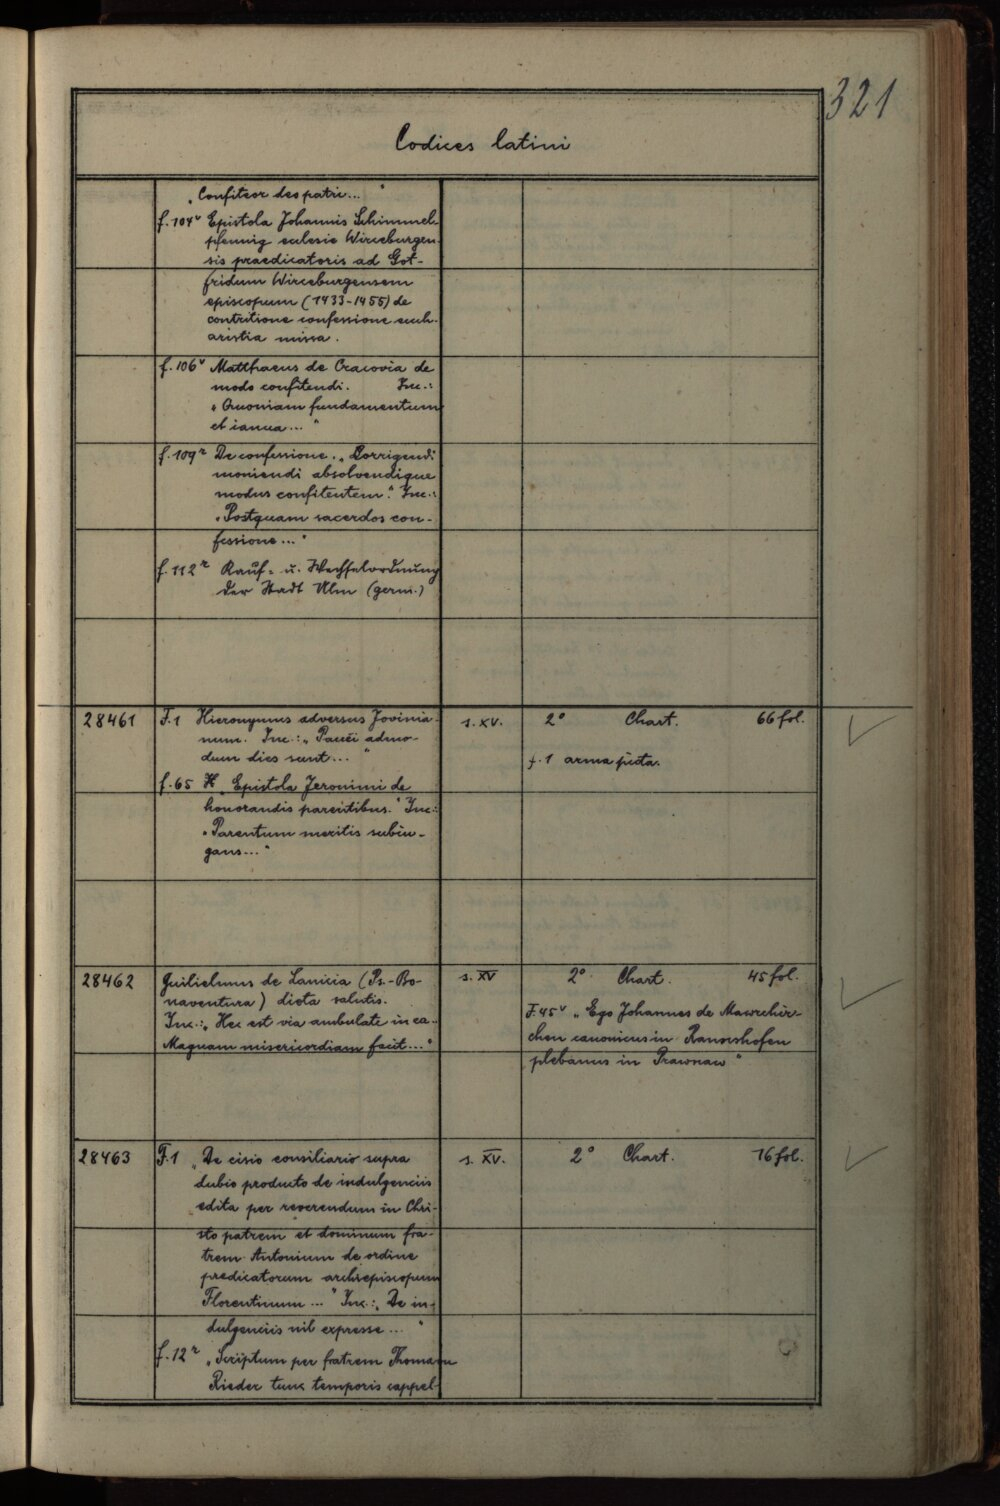 321
Codices latini
„Confiteor deo patri..."
f. 104v Epistola Johannis Schimmel-
pfennig eclesie Wirceburgen-
sis praedicatoris ad Got-
fridum Wirceburgensem
episcopum (1433-1455) de
contritione confessione euch-
aristia missa.
f. 106v Matthaeus de Cracovia de
modo confitendi. Inc.:
„Quoniam fundamentum
et ianua..."
f. 109r De confessione. „Corrigendi
moniendi absolvendique
modus confitentem." Inc.:
„Postquam sacerdos con-
fessione..."
f. 112r Kauf- u. Wechselordnung
der Stadt Ulm (germ.)
28461 F. 1 Hieronymus adversus Jovinia- s. XV. 2° Chart. 66 fol.
num. Inc.: „Pauci admo-
dum dies sunt..." f. 1 arma picta.
f. 65 „Epistola Jeronimi de
honorandis parentibus." Inc.:
„Parentum meritis subiu-
gans..."
28462 Guilielmus de Lanicia (Ps.-Bo- s. XV 2° Chart. 45 fol.
naventura) dieta salutis. F. 45v „Ego Johannes de Mawrchir-
Inc.: „Hec est via ambulate in ea. chen canonicus in Ranshofen
Magnam misericordiam facit..." plebanus in Prawnaw"
28463 F. 1 „De cisio consiliario supra s. XV. 2° Chart. 16 fol.
dubio producto de indulgenciis
edita per reverendum in Chri-
sto patrem et dominum fra-
trem Antonium de ordine
predicatorum archiepiscopum
Florentinum..." Inc.: „De in-
dulgenciis nil expresse..."
f. 12r „Scriptum per fratrem Thomam
Rieder tunc temporis cappel-